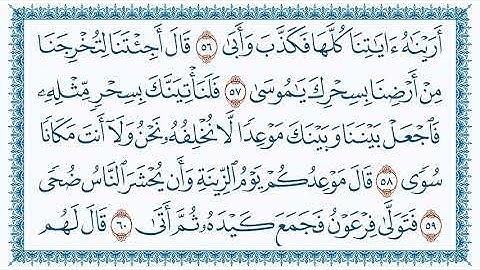 أَرَيْنَٰهُ ءَايَٰتِنَا كُلَّهَا فَكَذَّبَ وَأَبَىٰ ٥٦ قَالَ أَجِئْتَنَا لِتُخْرِجَنَا
مِنْ أَرْضِنَا بِسِحْرِكَ يَٰمُوسَىٰ ٥٧ فَلَنَأْتِيَنَّكَ بِسِحْرٍ مِّثْلِهِۦ
فَٱجْعَلْ بَيْنَنَا وَبَيْنَكَ مَوْعِدًا لَّا نُخْلِفُهُۥ نَحْنُ وَلَآ أَنتَ مَكَانًا
سُوًى ٥٨ قَالَ مَوْعِدُكُمْ يَوْمُ ٱلزِّينَةِ وَأَن يُحْشَرَ ٱلنَّاسُ ضُحًى
٥٩ فَتَوَلَّىٰ فِرْعَوْنُ فَجَمَعَ كَيْدَهُۥ ثُمَّ أَتَىٰ ٦٠ قَالَ لَهُم